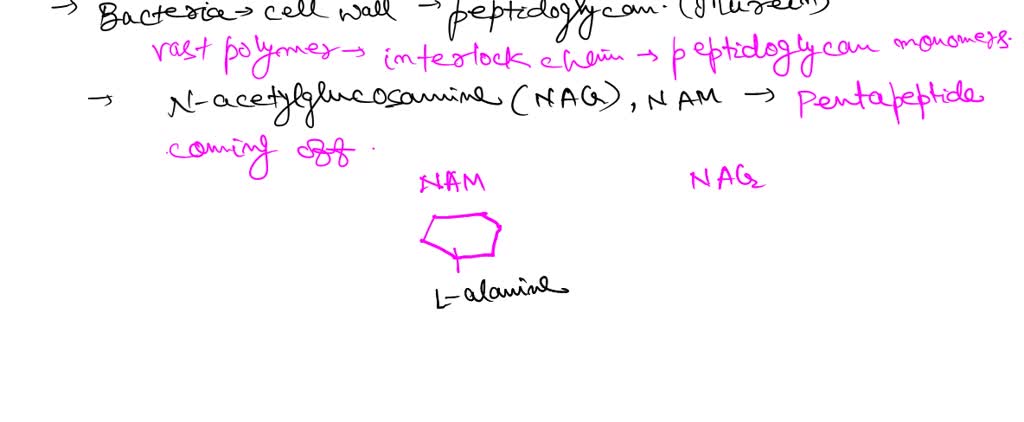 → Bacteria → cell wall → peptidoglycan. (Murein)
vast polymer → interlock chain → peptidoglycan monomers.
→ N-acetylglucosamine (NAG), NAM → Pentapeptide
coming off.
NAM NAG
L-alanine